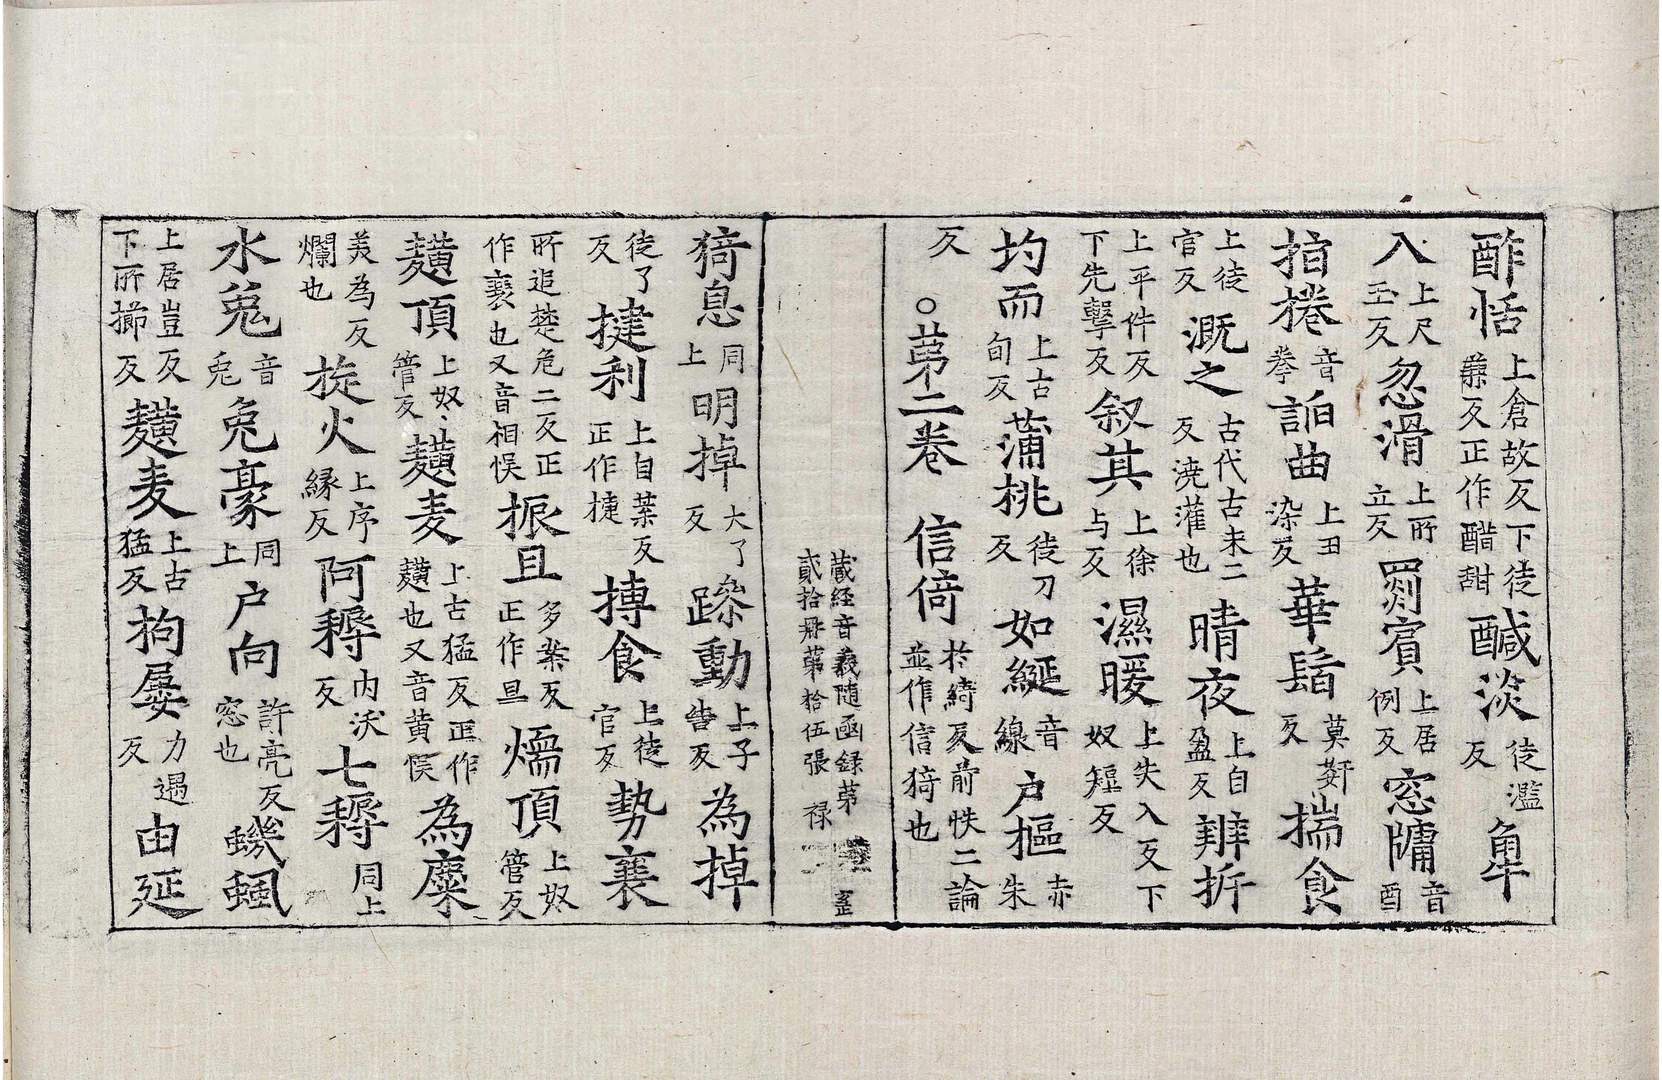 酢恬上倉故反下徒蒹反正作醋甜醎淡徒濫反𤰞
入上尺玉反忽滑上所立反罽賓上居例反窓牗音酉
捂棬音拳詘曲上丑染反華鬘莫奸反揣食
上徒官反溉之古代古未二反澆灌也晴夜上自盈反辨析
上平件反下先擊反叙其上徐与反濕暖上失入反下奴短反
圴而上古旬反蒲桃徒刀反如綖音線户樞赤朱
反○苐二卷 信𠋣於綺反前帙二論並作信猗也
藏経音義隨函錄苐
貳拾册苐拾伍張 禄
猗息同上明掉大了反踪動上子告反為掉
徒了反揵利上自葉反正作㨗摶食上徒官反勢襄
所追楚危二反正作衰也又音相悮振且多案反正作旦煗頂上奴管反
䵃頂上奴管反䵃麦上古猛反正作䵃也又音黄悮為麋
美為反爛也旋火上序縁反阿䅶内沃反七䅶同上
水兔音兎兔豪同上户向許亮反窓也蟣䖝
上居豈反下所擳反䵃麦上古猛反拘屡力遇反由延